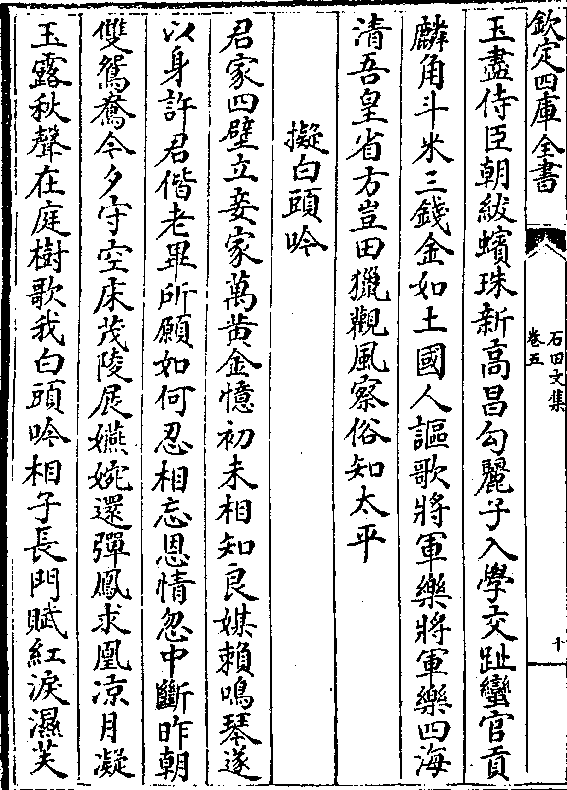 欽定四庫全書
石田文集
卷五
十
玉盡侍臣朝紱蠙珠新高昌勾麗子入學交趾蠻官貢
麟角斗米三錢金如土國人謳歌將軍樂將軍樂四海
清吾皇省方豈田獵觀風察俗知太平
擬白頭吟
君家四壁立妾家萬黄金憶初未相知良媒賴鳴琴遂
以身許君偕老畢所願如何忍相忘恩情忽中斷昨朝
雙鴛鴦今夕守空床茂陵展嬿婉還彈鳳求凰凉月凝
玉露秋聲在庭樹歌我白頭吟相子長門賦紅淚濕芙